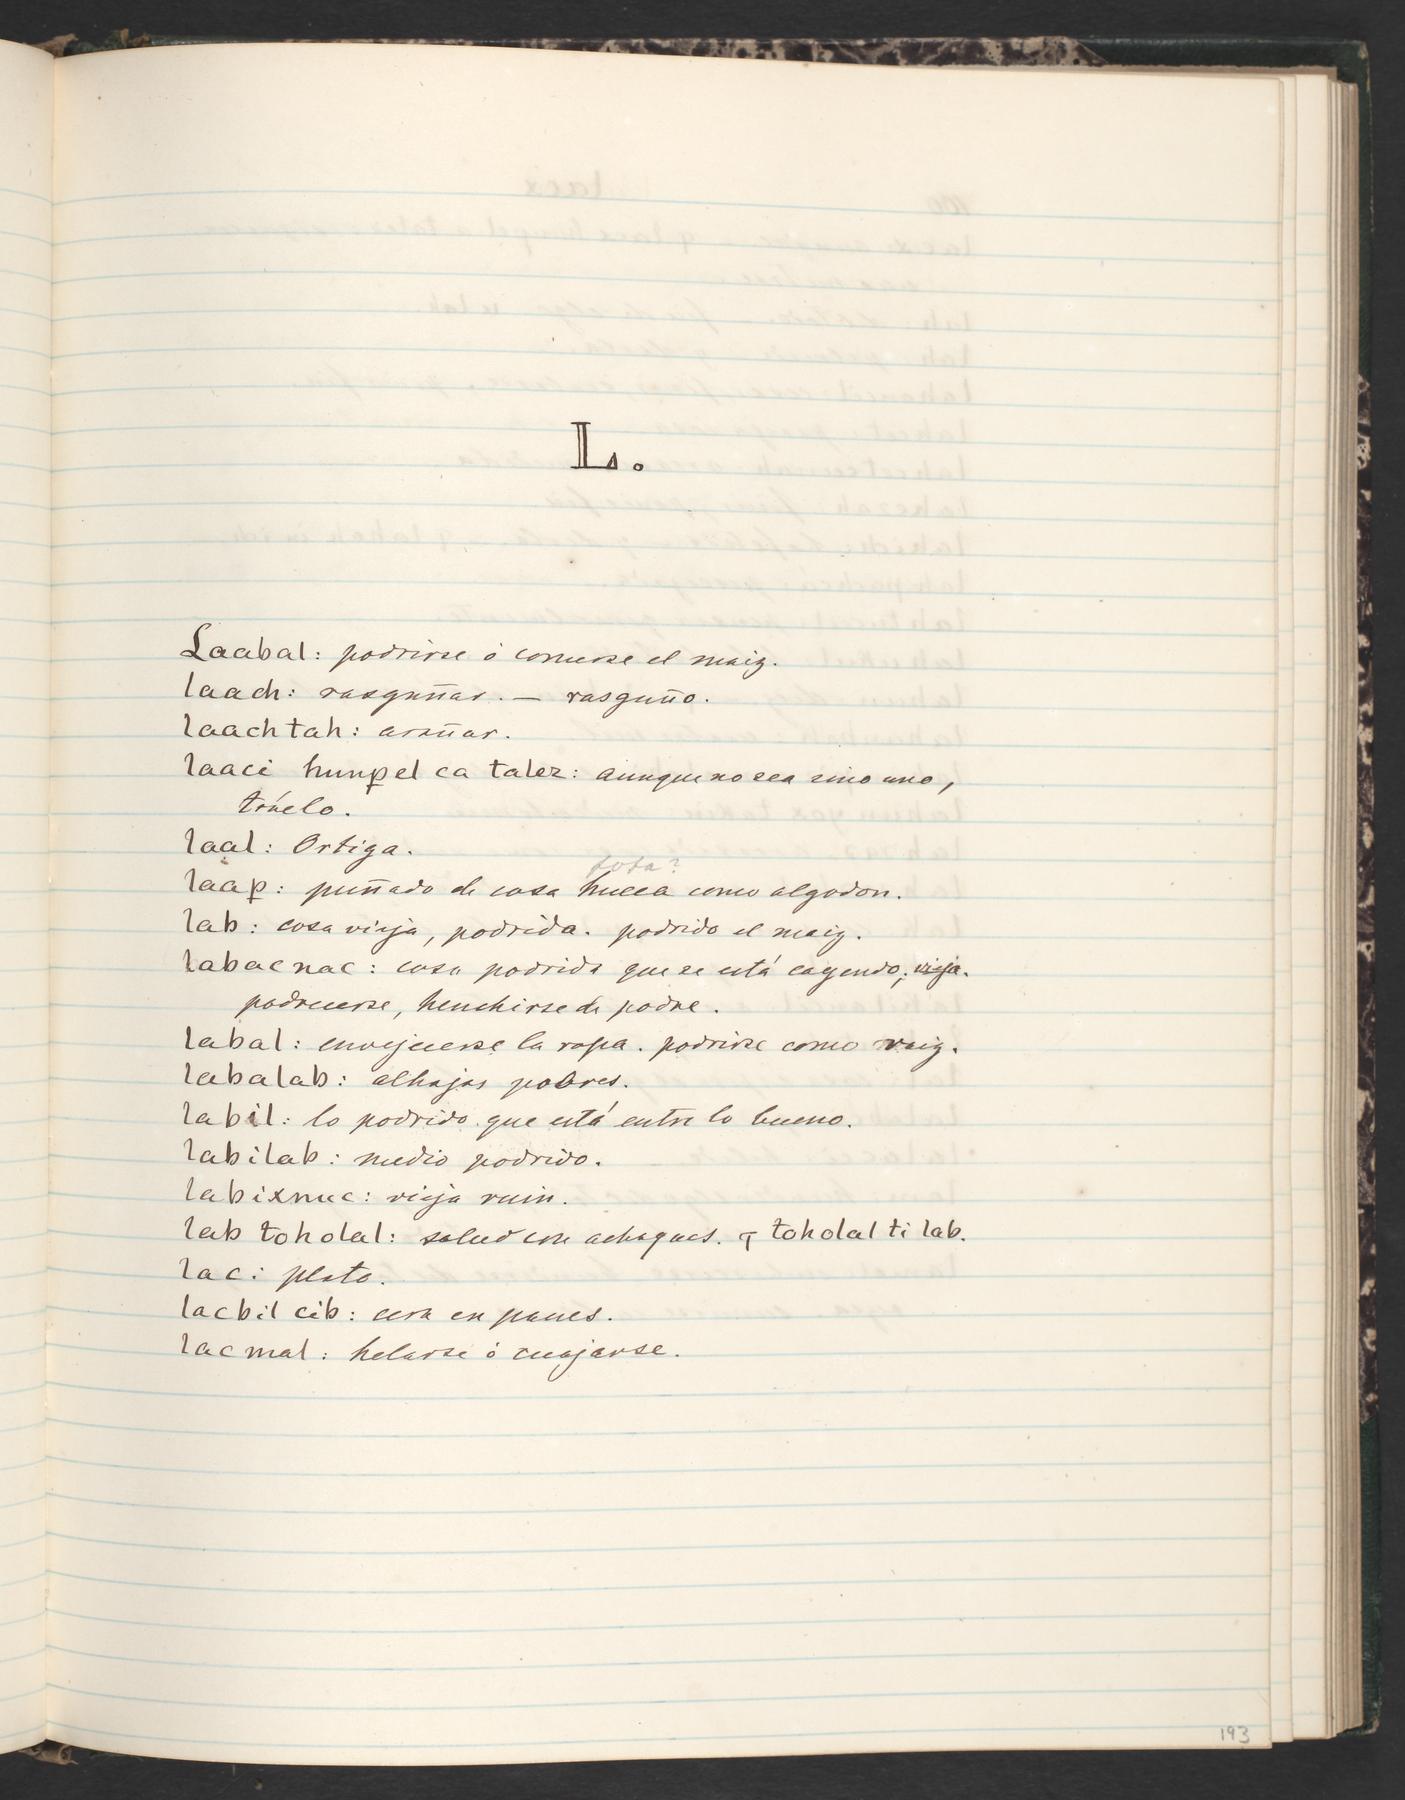 L.
Laabal: podrirse ó comerse el maiz.
laach: rasguñar. — rasguño.
laachtah: arañar.
laaci hunpel ca talez: aunque no sea sino uno,
tráelo.
laal: Ortiga.
fofa?
laap: puñado de cosa hueca como algodon.
lab: cosa vieja, podrida. podrido el maiz.
labacnac: cosa podrida que se está cayendo; vieja.
podrecerse, henchirse de podre.
labal: envejecerse la ropa. podrirse como maiz.
labalab: alhajas pobres.
labil: lo podrido que está entre lo bueno.
labilab: medio podrido.
labixnuc: vieja ruin.
lab toholal: salud con achaques. toholal ti lab.
lac: plato.
lacbil cib: cera en panes.
lacmal: helarse ó cuajarse.
193